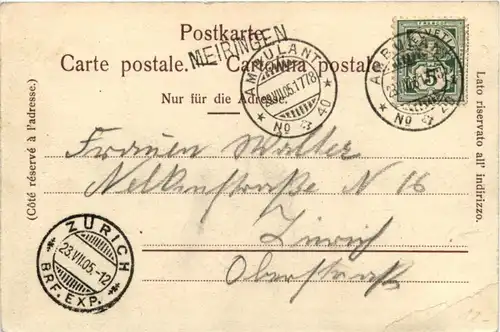 Postkarte.
MEIRINGEN
Carte postale. Cartolina postale.
Nur für die Adresse.
(Côté réservé à l'adresse.)
Lato riservato all' indirizzo.
AMBULANT
No 40
AMBULANT
No 40
5
Frauen Walter
Nelkenstraße N 16
Zürich
Oberstraß
ZÜRICH
23.VII.05.-12
BRF. EXP.